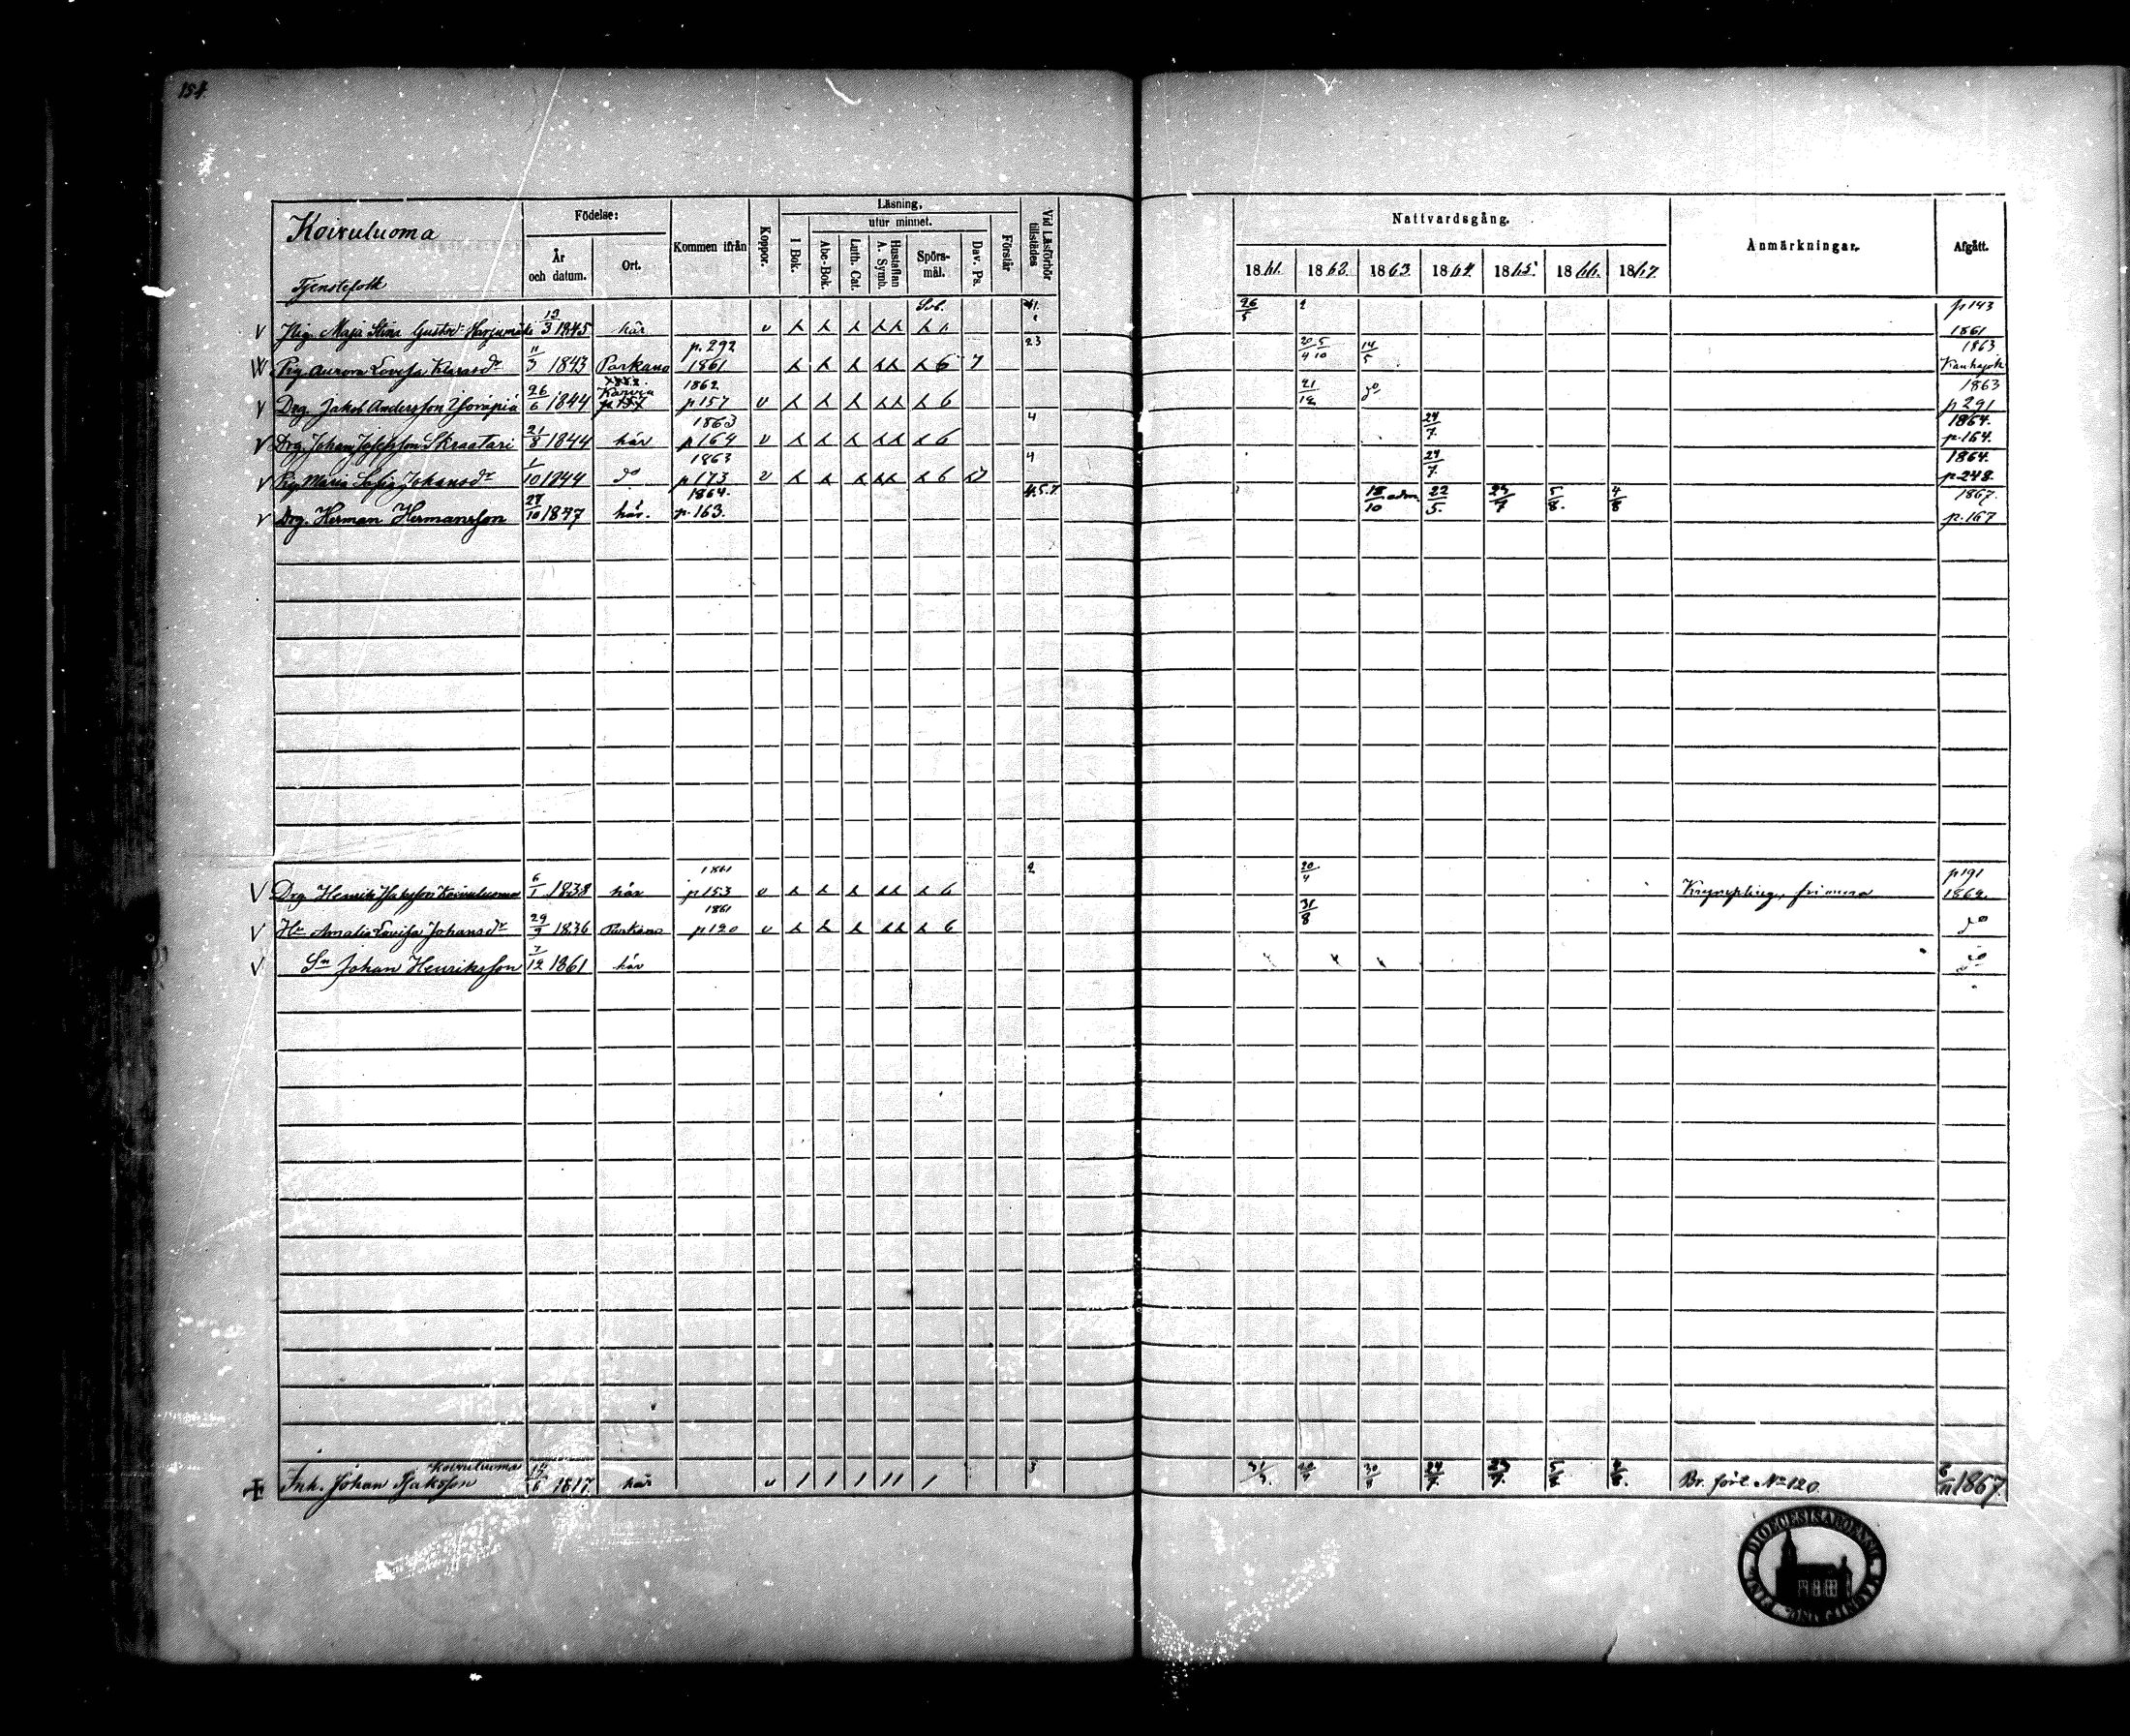 154.
Koiruluoma
Tjenstefolk
Födelse:
År och datum.
Ort.
Kommen ifrån
Koppor.
Läsning,
I Bok.
utur minnet.
Abc-Bok.
Luth. Cat.
Hustaflan A. Symb.
Spörs-mål.
Dav. Ps.
Förstår
Vid Läsförhör tillstädes
Nattvardsgång.
1861. 1862. 1863. 1864. 1865. 1866. 1867.
Anmärkningar.
Afgått.
Pig. Maja Stina Gustdr Harjumäki 13/3 1845 här v 26/5 p 143 1861
Pig. Aurora Lovisa Klarasdr 11/3 1843 Parkano p. 292 1861 6 7 23 20/4 5/10 14/5 1863 Kauhajoki
Drg. Jakob Andersson 26/6 1844 Karvia 1862 p 157 v 6 21/12 do 1863 p 291
Drg. Johan Josefsson Skraatari 21/8 1844 här 1863 p 164 v 6 4 24/7. 1864. p. 164.
Pig. Maria Sofia Johansdr 1/10 1844 do 1863 p 173 v 6 4 24/7. 1864. p. 248.
Drg. Herman Hermansson 27/10 1847 här. 1864. p. 163. 4.5.7. 18/10 adm 22/5. 23/7 5/8. 4/8 1867. p. 167
Drg. Henrik Jakobsson Koiruluoma 6/1 1838 här 1861 p 153 v 6 2 20/4 Krympling, p 191 1862.
Hu Amalia Lovisa Johansdr 29/9 1836 Parkano 1861 p 120 v 6 31/8 do
Sn Johan Henriksson 7/12 1861 här do
Koiruluoma
Inh. Johan Isaksson 1817. här v 3 24/7. 23/7. Br. förl. No 120 6/11 1867.
DIOECESIS ABOENSIS